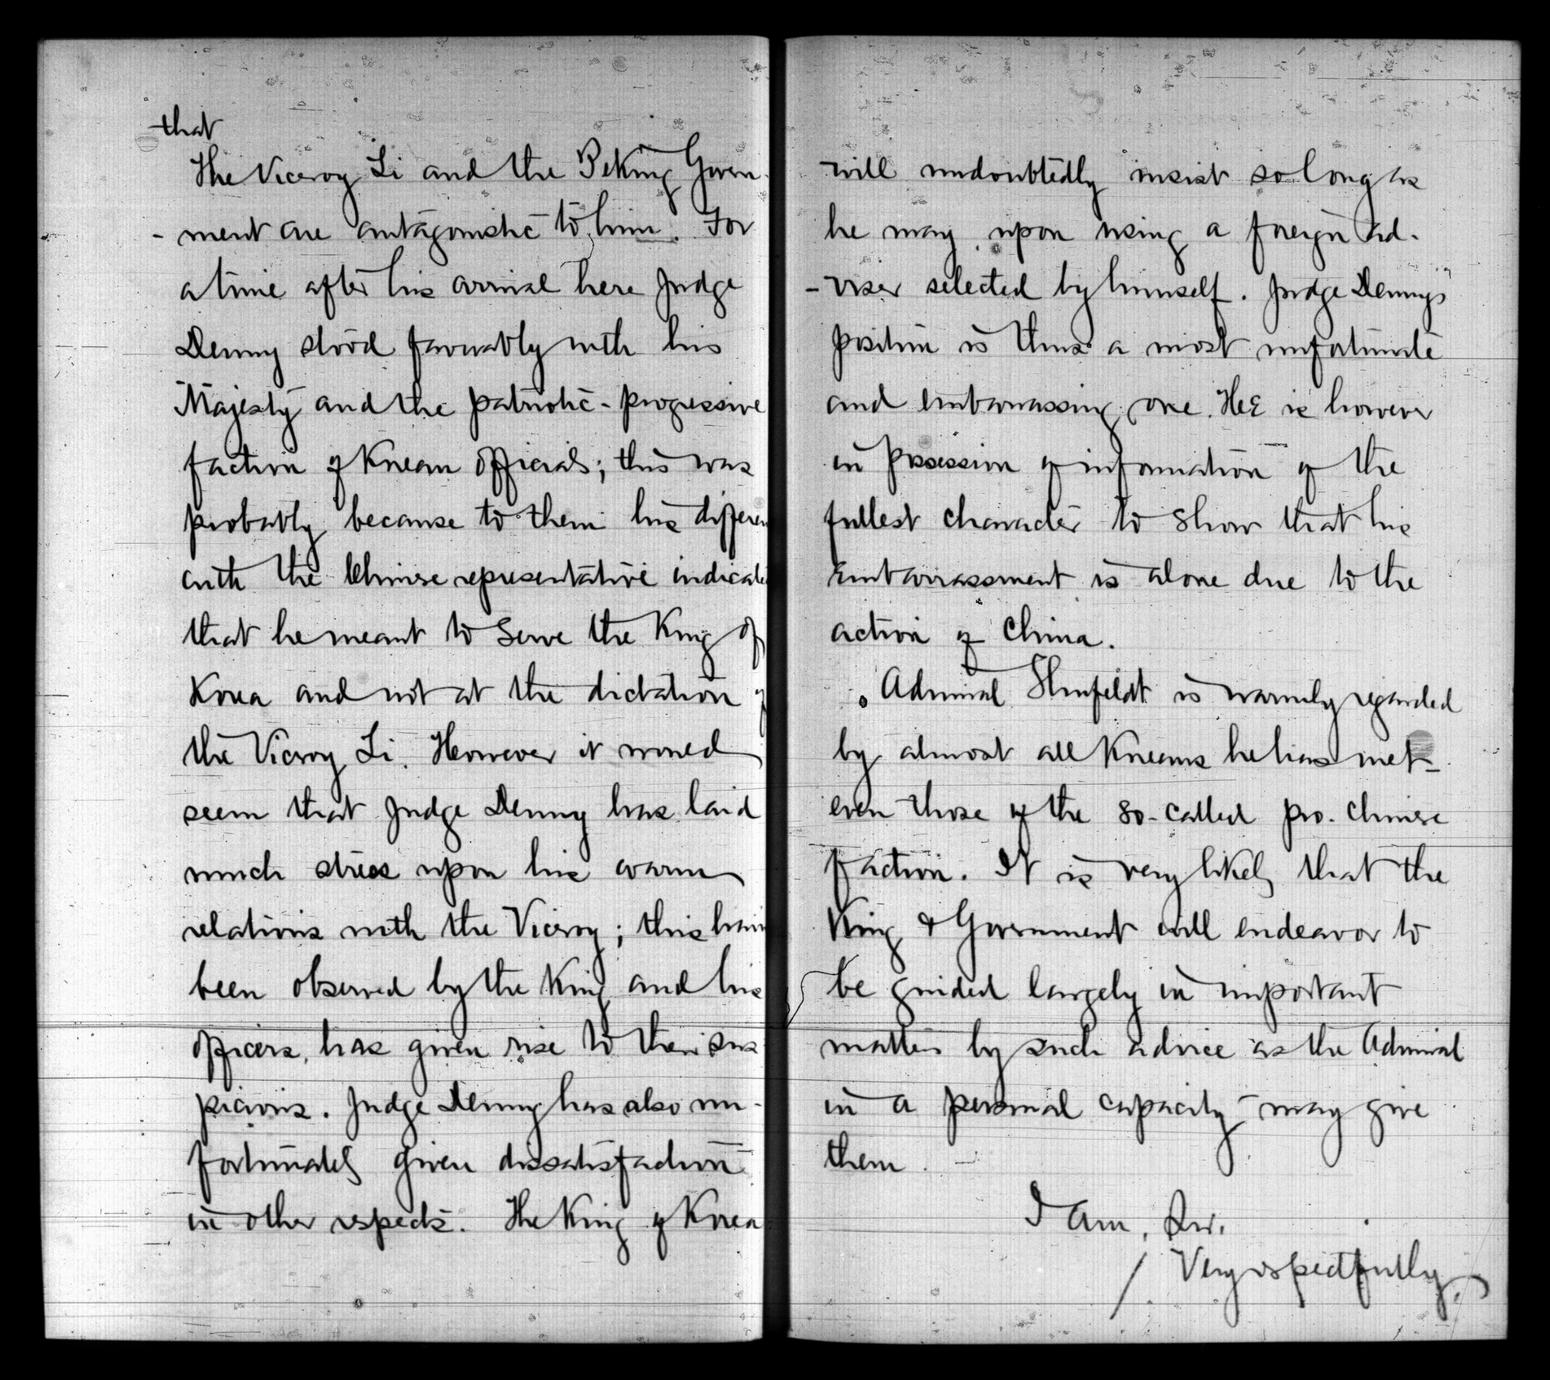 that
The Viceroy Li and the Peking Govern-
-ment are antagonistic to him. For
a time after his arrival here Judge
Denny stood favorably with his
Majesty and the patriotic-progressive
faction of Korean officials; this was
probably because to them his differen
with the Chinese representative indicate
that he meant to serve the King of
Korea and not at the dictation of
the Viceroy Li. However it would
seem that Judge Denny has laid
much stress upon his warm
relations with the Viceroy; this havin
been observed by the King and his
officers, has given rise to their sus
picions. Judge Denny has also un-
fortunately given dissatisfaction
in other respects. The King of Korea
will undoubtedly insist so long as
he may upon using a foreign ad-
-viser selected by himself. Judge Denny's
position is thus a most unfortunate
and embarrassing one. He is however
in possession of information of the
fullest character to show that his
embarrassment is alone due to the
action of China.
Admiral Shufeldt is warmly regarded
by almost all Koreans he has met-
even those of the so-called pro-Chinese
faction. It is very likely that the
King & Government will endeavor to
be guided largely in important
matters by such advice as the Admiral
in a personal capacity may give
them.
I am, Sir,
Very respectfully,